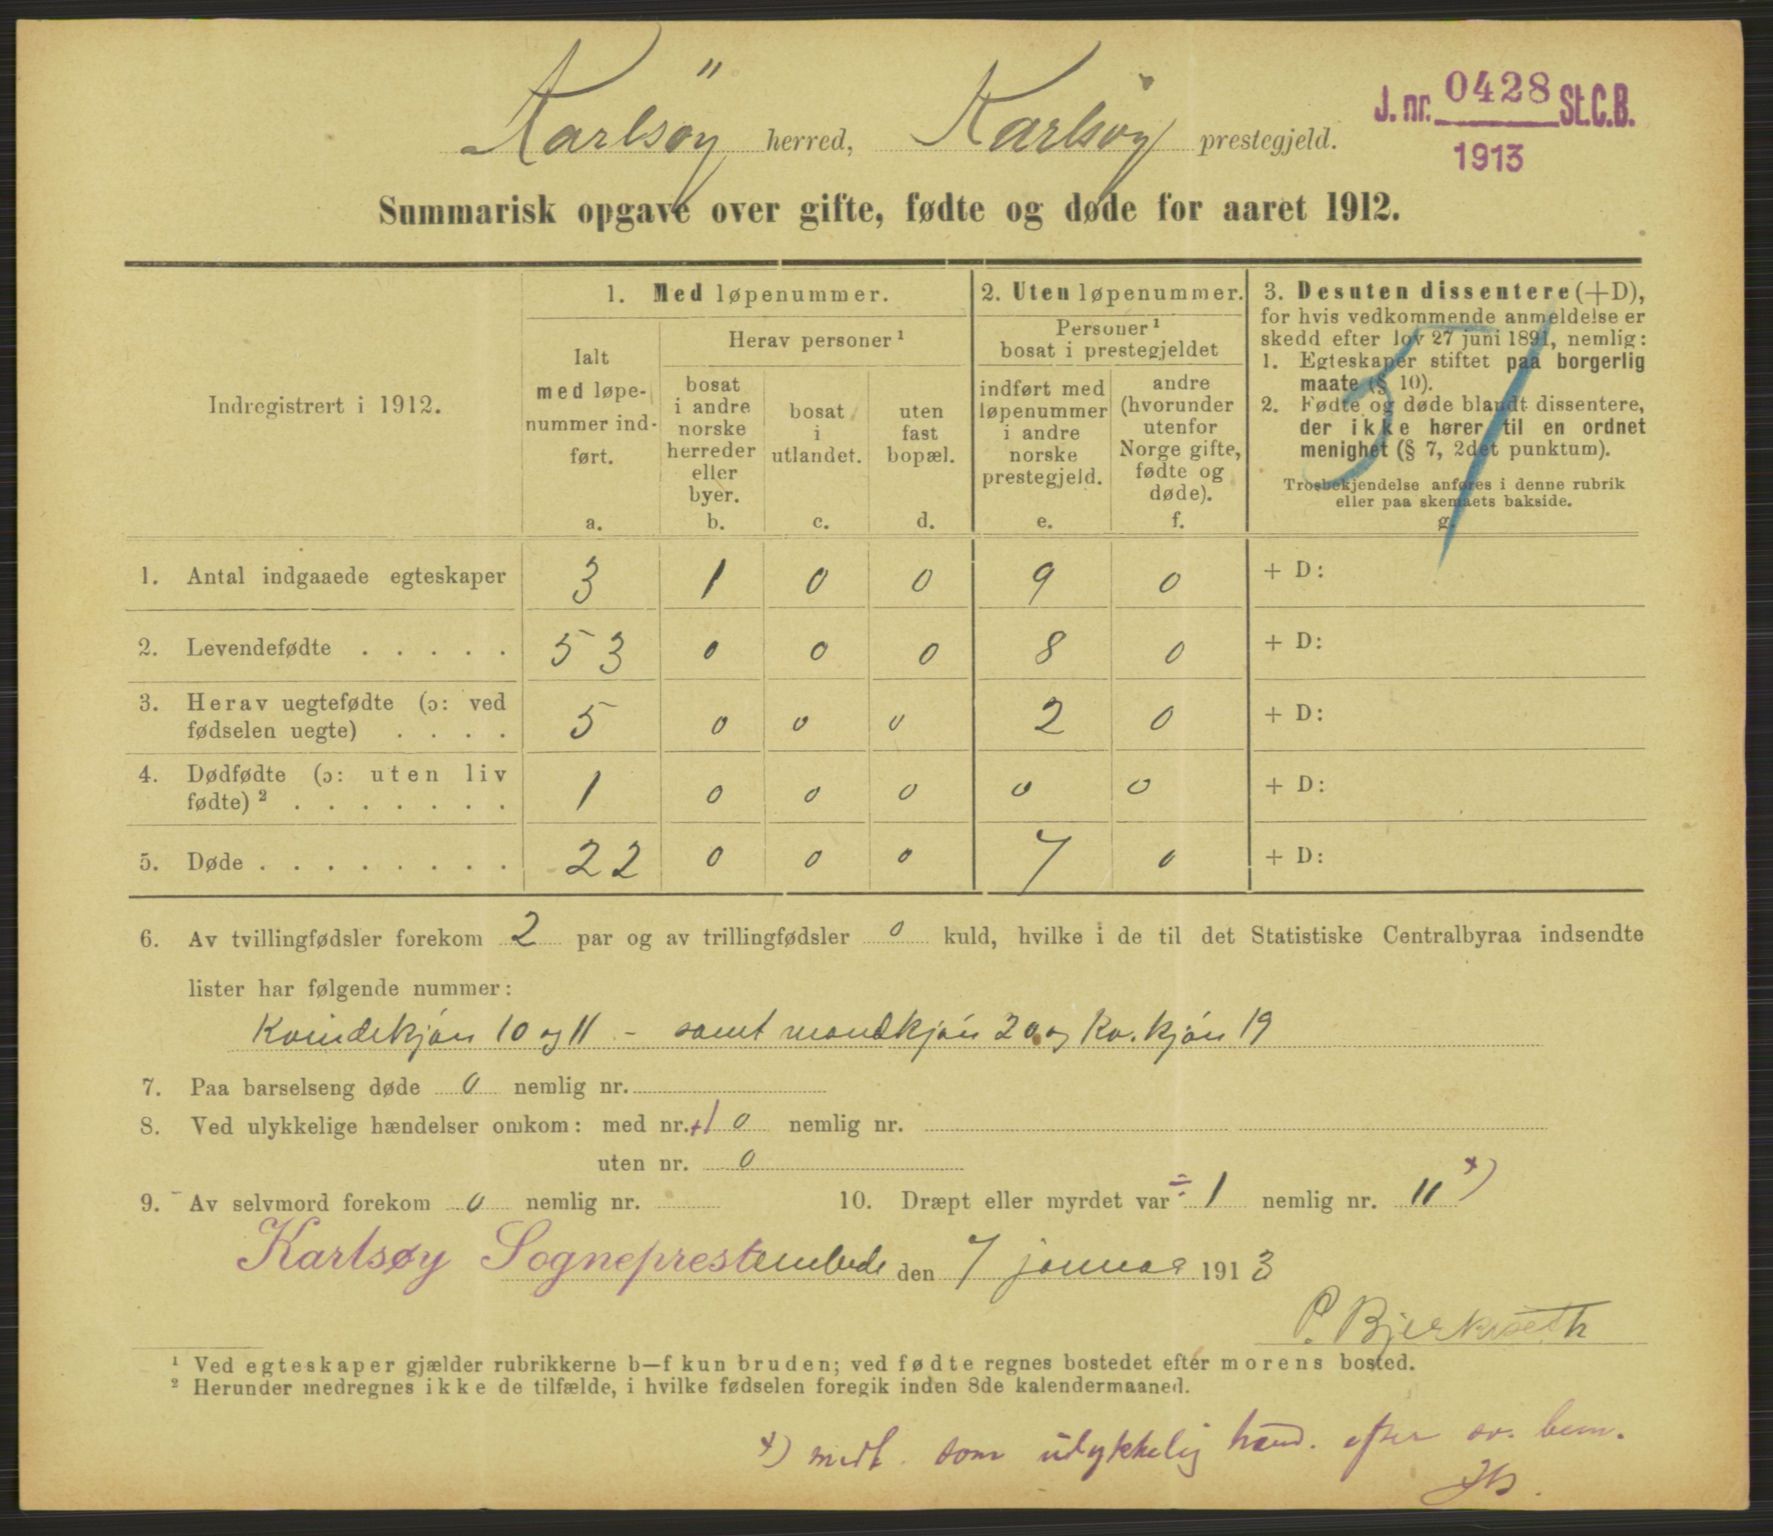 J. nr. 0428 St.C.B.
1913
Karlsöy herred, Karlsöy prestegjeld.
Summarisk opgave over gifte, fødte og døde for aaret 1912.
Indregistrert i 1912.
1. Med løpenummer.
Ialt
med løpe-
nummer ind-
ført.
a.
Herav personer ¹
bosat
i andre
norske
herreder
eller
byer.
b.
bosat
i
utlandet.
c.
uten
fast
bopæl.
d.
2. Uten løpenummer.
Personer ¹
bosat i prestegjeldet
indført med
løpenummer
i andre
norske
prestegjeld.
e.
andre
(hvorunder
utenfor
Norge gifte,
fødte og
døde).
f.
3. Desuten dissentere (+D),
for hvis vedkommende anmeldelse er
skedd efter lov 27 juni 1891, nemlig:
1. Egteskaper stiftet paa borgerlig
maate (§ 10).
2. Fødte og døde blandt dissentere,
der ikke hører til en ordnet
menighet (§ 7, 2det punktum).
Trosbekjendelse anføres i denne rubrik
eller paa skemaets bakside.
g.
1. Antal indgaaede egteskaper 3 1 0 0 9 0 + D:
2. Levendefødte . . . . . 53 0 0 0 8 0 + D:
3. Herav uegtefødte (ɔ: ved
fødselen uegte) . . . . 5 0 0 0 2 0 + D:
4. Dødfødte (ɔ: uten liv
fødte) ² . . . . . . . 1 0 0 0 0 0 + D:
5. Døde . . . . . . . . 22 0 0 0 7 0 + D:
6. Av tvillingfødsler forekom 2 par og av trillingfødsler 0 kuld, hvilke i de til det Statistiske Centralbyraa indsendte
lister har følgende nummer:
Kvindekjön 10 og 11 – samt mandkjön 20 og Kv. kjön 19
7. Paa barselseng døde 0 nemlig nr.
8. Ved ulykkelige hændelser omkom: med nr. +1 0 nemlig nr.
uten nr. 0
9. Av selvmord forekom 0 nemlig nr. 10. Dræpt eller myrdet var ÷ 1 nemlig nr. 11 x)
Karlsøy Sogneprestembede den 7 januar 1913
P. Bjerkseth
¹ Ved egteskaper gjælder rubrikkerne b—f kun bruden; ved fødte regnes bostedet efter morens bosted.
² Herunder medregnes ikke de tilfælde, i hvilke fødselen foregik inden 8de kalendermaaned.
x) som ulykkelig hænd. efter